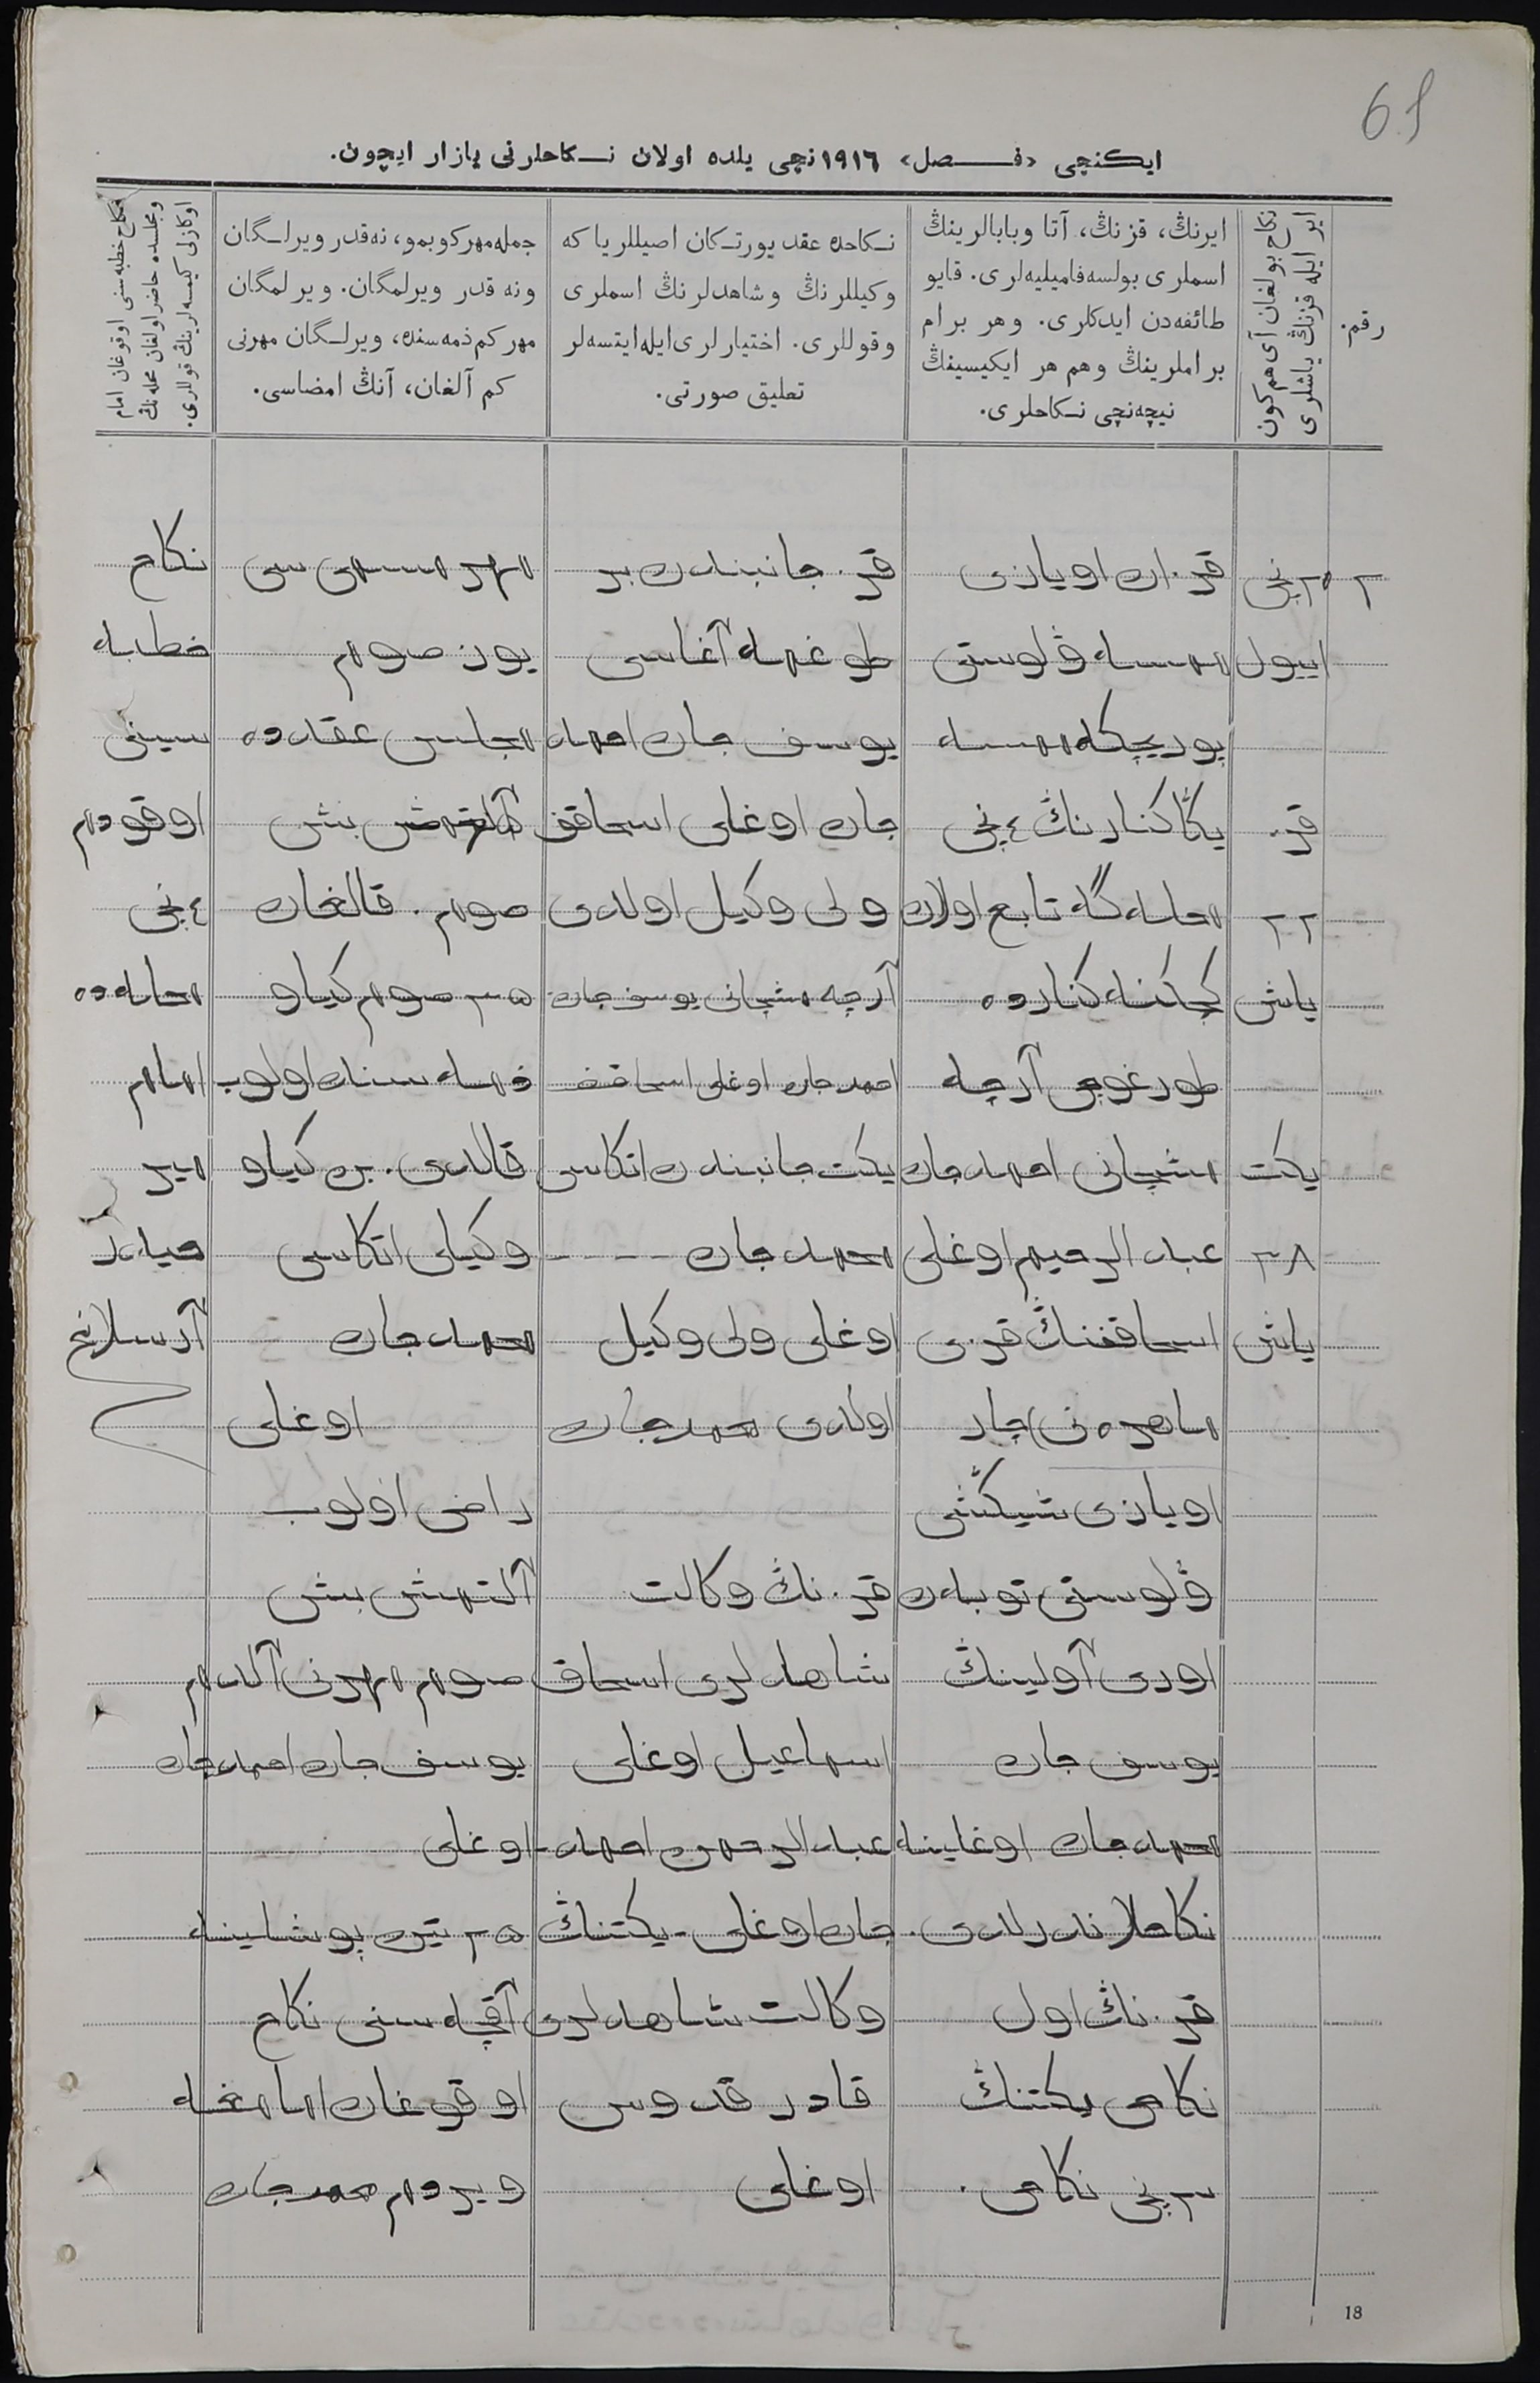 61
ایکنچی «فصل» ١٩١٦ نچی یلده اولان نکاحلرنی یازار ایچون.
رقم.
ایر ایله قزنڭ یاشلری
نکاح بولغان آی هم کون
ایرنڭ، قزنڭ، آتا وبابالرینڭ
اسملری بولسه فامیلیه‌لری. قایو
طائفه‌دن ایدکلری. وهر برام
براملرینڭ وهم هر ایکیسینڭ
نیچه‌نچی نکاحلری.
نکاحده عقد یورتکان اصیللریا که
وکیللرنڭ وشاهدلرنڭ اسملری
وقوللری. اختیارلری ایله ایتسه‌لر
تعلیق صورتی.
جمله مهر کوبمو، نه قدر ویرلگان
ونه قدر ویرلمگان. ویرلمگان
مهر کم ذمه سنده، ویرلگان مهرنی
کم آلغان، آنڭ امضاسی.
نکاح خطبه سنی اوقوغان امام
ومجلسده حاضر اولغان محله نڭ
اوکازلی کیسه لرینڭ قوللری.
٢
٢٥ نچی
اییول
قز
٢٢
یاش
یکت
٣٨
یاش
قزان اویازی
ممسه ۋلوستی
بوریچکه ممسه
یڭاکنارنڭ ٤ نچی
محله گه تابع اولان
کچکنه کنارده
طورغوچی آرچه
مشچانی احمدجان
عبدالرحیم اوغلی
اسحاقفنڭ قزی
ماهره نی چار
اویازی شیکشی
ۋلوستی توبان
اوری آولینڭ
یوسف جان
محمدجان اوغلینه
نکاحلاندرلدی.
قزنڭ اول
نکاحی یکتنڭ
٣ نچی نکاحی.
قز جانبندن بر
طوغمه آغاسی
یوسف جان احمد
جان اوغلی اسحاقف
ولی وکیل اولدی
آرچه مشچانی یوسف جان
احمدجان اوغلی اسحاقف
یکت جانبندن اتکاسی
محمدجان
اوغلی ولی وکیل
اولدی محمدجان
قزنڭ وکالت
شاهدلری اسحاق
اسماعیل اوغلی
عبدالرحمن احمد
جان اوغلی - یکتنڭ
وکالت شاهدلری
قادر قدوس
اوغلی
مهر مسمی سی
یوز صوم
مجلس عقدده
آلتمش بش
صوم. قالغان
٣٥ صوم کیاو
ذمه سنده اولوب
قالدی. بن کیاو
وکیلی اتکاسی
محمدجان
اوغلی
راضی اولوب
آلتمش بش
صوم مهرنی آلدم
یوسف جان احمدجان
اوغلی
٢٥ تین پوشلینه
آقچه سنی نکاح
اوقوغان امامغه
ویردم محمدجان
نکاح
خطبه
سینی
اوقودم
٤ نچی
محله ده
امام
میر
حیدر
آرسلانف
18